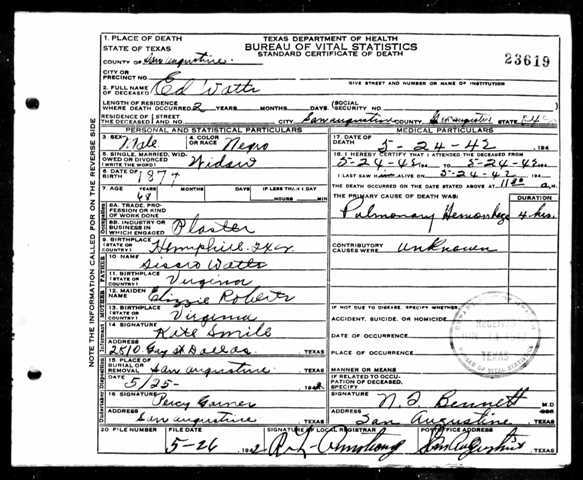 NOTE THE INFORMATION CALLED FOR ON THE REVERSE SIDE
1. PLACE OF DEATH
STATE OF TEXAS
COUNTY OF San Augustine
TEXAS DEPARTMENT OF HEALTH
BUREAU OF VITAL STATISTICS
STANDARD CERTIFICATE OF DEATH
23619
CITY OR PRECINCT NO.
GIVE STREET AND NUMBER OR NAME OF INSTITUTION
2. FULL NAME OF DECEASED Ed Watts
LENGTH OF RESIDENCE WHERE DEATH OCCURRED 2 YEARS MONTHS DAYS (SOCIAL SECURITY NO.
RESIDENCE OF THE DECEASED STREET AND NO. CITY San Augustine COUNTY San Augustine STATE
PERSONAL AND STATISTICAL PARTICULARS
3. SEX Male 4. COLOR OR RACE Negro
5. SINGLE, MARRIED, WIDOWED OR DIVORCED (WRITE THE WORD)
6. DATE OF BIRTH 1877
7. AGE YEARS MONTHS DAYS IF LESS THAN 1 DAY
HOURS MIN.
8A. TRADE, PROFESSION OR KIND OF WORK DONE
8B. INDUSTRY OR BUSINESS IN WHICH ENGAGED
9. BIRTHPLACE (STATE OR COUNTRY) Hemphill
10. NAME Watts
11. BIRTHPLACE (STATE OR COUNTRY) Virginia
12. MAIDEN NAME Lizzie Roberts
13. BIRTHPLACE (STATE OR COUNTRY) Virginia
14. SIGNATURE
ADDRESS 2810 Dallas TEXAS
15. PLACE OF BURIAL OR REMOVAL San Augustine TEXAS
DATE 5/25- 194
16. SIGNATURE
ADDRESS San Augustine TEXAS
MEDICAL PARTICULARS
17. DATE OF DEATH 5-24-42 194
18. I HEREBY CERTIFY THAT I ATTENDED THE DECEASED FROM
5-24-42 TO 5-24-42
I LAST SAW H ALIVE ON 5-24-42 194
THE DEATH OCCURRED ON THE DATE STATED ABOVE AT 11 a. M.
THE PRIMARY CAUSE OF DEATH WAS: DURATION
Pulmonary Hemorrhage 4 hrs.
CONTRIBUTORY CAUSES WERE Unknown
IF NOT DUE TO DISEASE, SPECIFY WHETHER:
ACCIDENT, SUICIDE, OR HOMICIDE
DATE OF OCCURRENCE
PLACE OF OCCURRENCE
MANNER OR MEANS
IF RELATED TO OCCUPATION OF DECEASED, SPECIFY
SIGNATURE Bennett M.D.
ADDRESS San Augustine TEXAS
20 FILE NUMBER FILE DATE 5-26 1942
SIGNATURE OF LOCAL REGISTRAR
POST OFFICE ADDRESS San Augustine